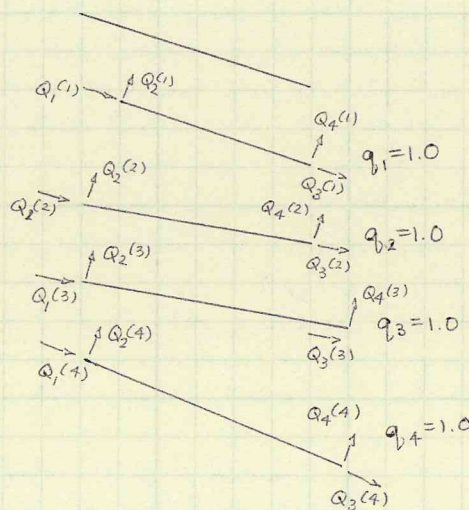 Q1(1) Q2(1)
Q4(1)
Q3(1) q1=1.0
Q2(2) Q2(2)
Q4(2)
Q3(2) q2=1.0
Q1(3) Q2(3)
Q4(3)
Q3(3) q3=1.0
Q1(4) Q2(4)
Q4(4) q4=1.0
Q3(4)